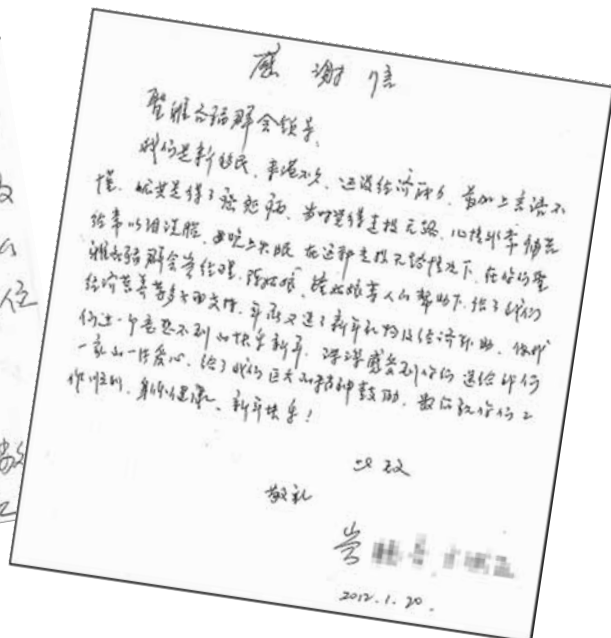 感谢信
圣雅各福群会领导、
我们是新移民，来港不久，还没经济能力，首加上言语不
懂，妮其是得了癌症病，当时觉得走投无路，心情非常痛苦
经常以泪洗脸，晚上失眠 在这种走投无路情况下，在你们圣
雅各福群会岑经理，陈姑娘，陆姑娘等人的帮助下，给了我们
经济营养等多方面支持，年底又送了新年礼物及经济补助，使我
们过一个意想不到的快乐新年，深深感受到你们送给我们
一家的一片爱心，给了我们巨大的精神鼓励，最后祝你们工
作顺利，身体健康，新年快乐！
此致
敬礼
2012.1.20.
位